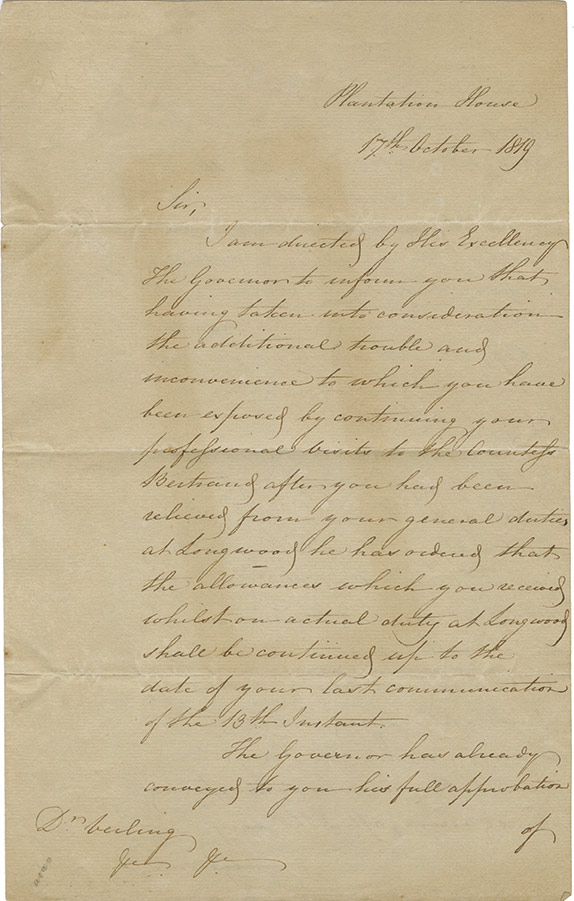 Plantation House
17th October 1819
Sir,
I am directed by His Excellency
The Governor to inform you that
having taken into consideration
the additional trouble and
inconvenience to which you have
been exposed by continuing your
professional visits to the Countess
Bertrand after you had been
relieved from your general duties
at Longwood he has ordered that
the allowances which you received
whilst on actual duty at Longwood
shall be continued up to the
date of your last communication
of the 13th Instant.
The Governor has already
conveyed to you his full approbation
of
Dr. Verling
&c &c